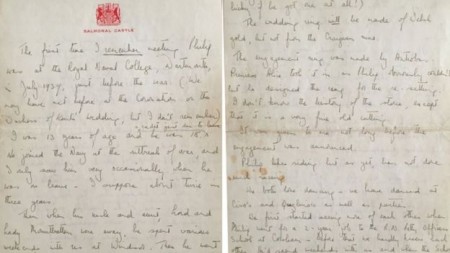 BALMORAL CASTLE
The first time I remember meeting Philip
was at the Royal Naval College, Dartmouth,
in July 1939, just before the war. (We
may have met before at the Coronation or the
Duchess of Kent's wedding, but I don't remember).
I was 13 years of age and he was 18
He joined the Navy at the outbreak of war and
I only saw him very occasionally when he
was on leave - I suppose about twice in
three years.
Then when his uncle and aunt, Lord and
Lady Mountbatten were away, he spent various
weekends with us at Windsor. Then he went
The wedding ring will be made of Welsh
gold, but not from the
The engagement ring was made by Antrobus.
but he designed the ring for the re-setting.
I don't know the history of the stone, except
that it is a very fine old cutting.
It was given to me not long before the
engagement was announced.
Philip likes riding but as yet, has not done
We both love dancing - we have danced at
Ciro's and Quaglino's as well as at parties.
We first started seeing more of each other when
Philip went for a 2-year job to the R.N. Petty Officers
School at Corsham - before that we hardly knew